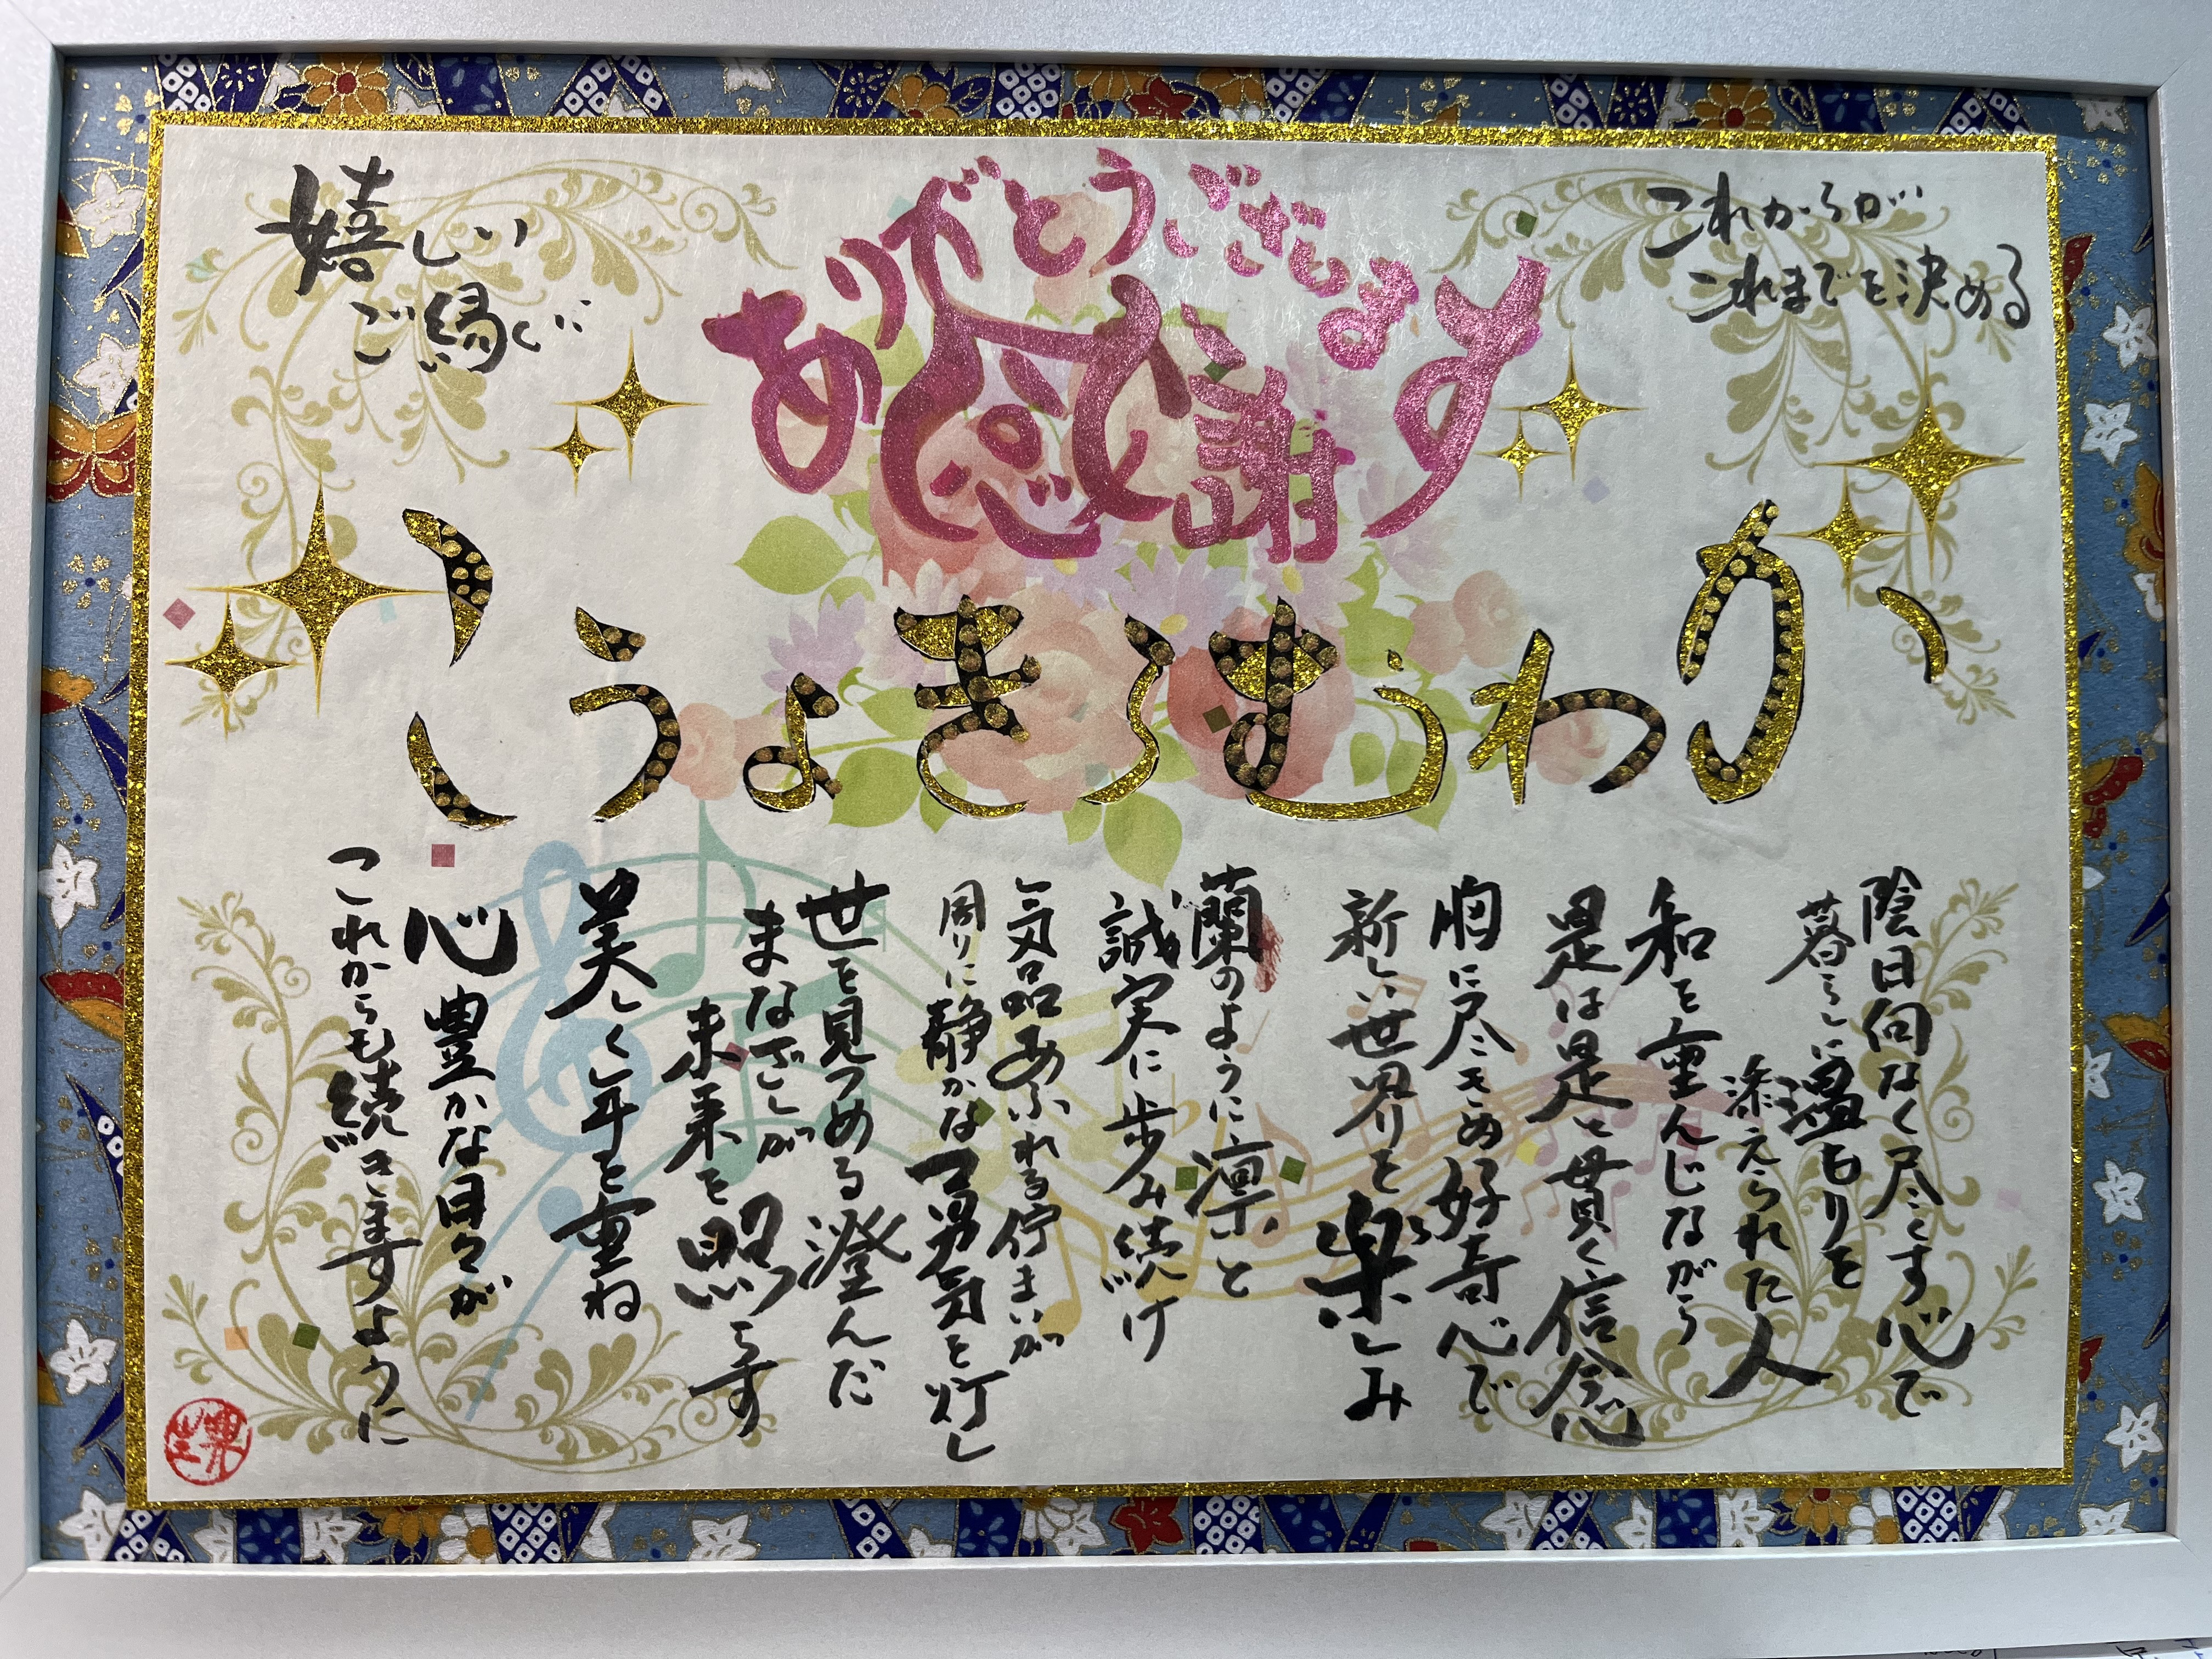 これからが
これまでを決める
ありがとうございます
感謝
嬉しい
ご縁に
かわむらきょうこ
陰日向なく尽くす心で
暮らしに温もりを
添えられた人
和を重んじながら
是は是と貫く信念
胸に尽きぬ好奇心で
新しい世界を楽しみ
蘭のように凛と
誠実に歩み続け
気品あふれる佇まいが
周りに静かな勇気を灯し
世を見つめる澄んだ
まなざしが
未来を照らす
美しく年を重ね
心豊かな日々が
これからも続きますように